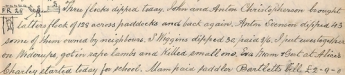 Three flocks dipped today, John and Anton Christopherson brought
latters flock of 182 across paddocks and back again. Anton Evenion dipped 43
some of them owned by neighbours. T. Wiggins dipped 30, paid 5/-. I put ewes together
on Mdoups, got in rape lambs and killed small one. Tom Munn Out at
Charley started today for school. Man paid paddler Bartletts Bill, £2-9-9